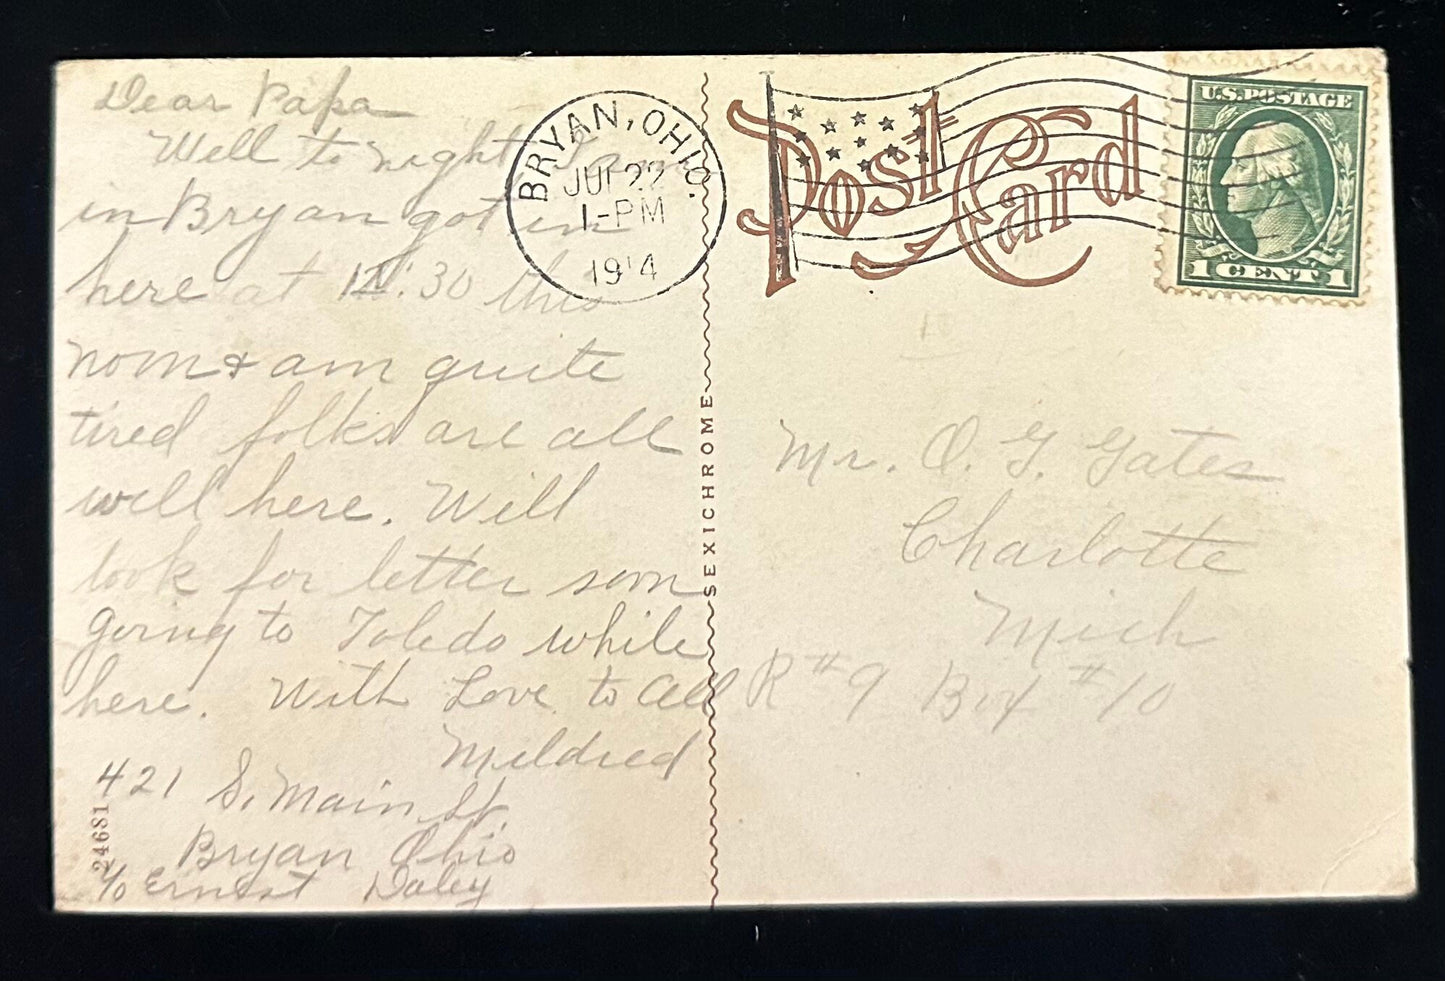 Dear Papa
Well to night I am
in Bryan got in
here at 12:30 this
noon & am quite
tired folks are all
well here. Will
look for letter soon
going to Toledo while
here. With Love to All
Mildred
421 S. Main St.
Bryan Ohio
c/o Ernest Daley
24681
SEXICHROME
BRYAN, OHIO.
22
1-PM
1914
Post Card
U.S. POSTAGE
1 CENT 1
Mr. O. G. Gates
Charlotte
Mich
R #9 Box #10